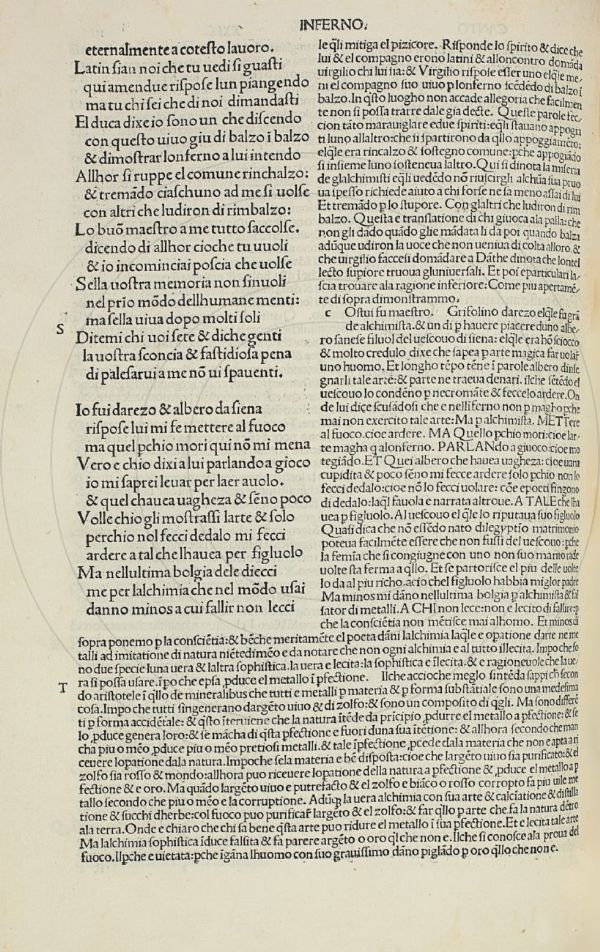 INFERNO.
eternalmente a cotesto lauoro.
Latin sian noi che tu uedi si guasti
qui amendue rispose lun piangendo
ma tu chi sei che di noi dimandasti
El duca dixe io sono un che discendo
con questo uiuo giu di balzo ĩ balzo
& dimostrar lonferno a lui intendo
Allhor si ruppe el comune rinchalzo:
& tremãdo ciaschuno ad me si uolse
con altri che ludiron di rimbalzo:
Lo buõ maestro a me tutto saccolse.
dicendo di allhor cioche tu uuoli
& io incominciai poscia che uolse
Sella uostra memoria non sinuoli
nel prio mõdo dellhumane menti:
ma sella uiua dopo molti soli
S
Ditemi chi uoi sete & diche genti
la uostra sconcia & fastidiosa pena
di palesarui a me nõ ui spauenti.
Io fui darezo & albero da siena
rispose lui mi fe mettere al fuoco
ma quel pchio mori qui nõ mi mena
Vero e chio dixi a lui parlando a gioco
io mi saprei leuar per laer auolo.
& quel chauea uagheza & sẽno poco
Volle chio gli mostrassi larte & solo
perchio nol fecci dedalo mi fecci
ardere a tal che lhauea per figluolo
Ma nellultima bolgia delle diecci
me per lalchimia che nel mõdo usai
danno minos a cui fallir non lecci
le q̃li mitiga el pizicore. Risponde lo spirito & dice che
lui & el compagno erono latini & alloncontro domãda
uirgilio chi lui sia: & Virgilio rispose esser uno elq̃le me/
ni el compagno suo uiuo p lonferno scẽdẽdo di balzo ĩ
balzo. In q̃sto luogho non accade allegoria che facilmen
te non si possa trarre dale gia decte. Queste parole fec/
cion tãto marauiglare e due spiriti: eq̃li stauano appoggia
ti luno allaltro: che si spartirono da q̃llo appoggiamẽto:
elq̃le era rincalzo & sostegno comune: pche appogiãdo
si insieme luno sosteneua laltro. Qui si dinota la miseria
de glalchimisti eq̃li uedẽdo nõ riuscirgli alchũa sua pruo
ua spesso richiede aiuto a chi forse ne sa meno assai di lui
Et tremãdo p lo stupore. Con glaltri che ludiron di rim
balzo. Questa e translatione di chi giuoca ala palla: che
non gli dado quãdo glie mãdata li da poi quando balza
adũque udiron la uoce che non ueniua di colta alloro. &
che uirgilio faccessi domãdare a Dãthe dinota che lontel
lecto supiore truoua gluniuersali. Et poi eparticulari la/
scia trouare ala ragione inferiore: Come piu apertamẽ/
te di sopra dimonstrammo.
c Ostui fu maestro. Grifolino darezo elq̃le fu grã
de alchimista. & un di p hauere piacere duno albe/
ro sanese filuol del uescouo di siena: elq̃le era hõ sciocco
& molto credulo dixe che sapea p arte magica far uolar
uno huomo. Et longho tẽpo tẽne ĩ parole albero dinse
gnarli tale arte: & parte ne traeua denari. ilche sẽtẽdo el
uescouo lo condẽno p necromãte & feccelo ardere. On
de lui dice scusãdosi che e nellinferno non p magho pche
mai non exercito tale arte: Ma p alchimista. METTere
al fuoco. cioe ardere. MA Quello pchio mori: cioe lar/
te magha q̃ alonferno. PARLANdo a giuoco: cioe mo
tegiãdo. ET Quei albero che hauea uagheza: cioe uana
cupidita & poco sẽno mi fecce ardere solo pchio non lo
fecci dedalo: cioe nõ lo fecci uolare: cõe epoeti fingono
di dedalo: laq̃l fauola e narrata altroue. A TALE che lha
uea p figluolo. Al uescouo el q̃le lo riputaua suo figluolo
Quasi dica che nõ essẽdo nato di legyptio matrimonio
poteua facilmẽte essere che non fussi del uescouo: pche
la femĩa che si congiugne con uno non suo marito rade
uolte sta ferma a q̃llo. Et se partorisce el piu delle uolte
lo da al piu richo. acio chel figluolo habbia miglor padre
Ma minos mi dãno nellultima bolgia p alchimista & fal
sator di metalli. A CHI non lece: non e lecito di fallire: p
che la consciẽtia non mẽtisce mai alhomo. Et minos di
sopra ponemo p la consciẽtia: & bẽche meritamẽte el poeta dãni lalchimia laq̃le e opatione darte ne me
talli ad imitatione di natura niẽtedimẽo e da notare che non ogni alchimia e al tutto illecita. Impo che so
no due specie luna uera & laltra sophistica. la uera e lecita: la sophistica e illecita. & e ragioneuole che la ue/
ra si possa usare. ĩpo che epsa, pduce el metallo ĩ pfectione. Ilche accioche meglo sintẽda sappi ch̃ secon
T
do aristotele ĩ q̃llo de mineralibus che tutti e metalli p materia & p forma substãtiale sono una medesima
cosa. Impo che tutti singenerano dargẽto uiuo & di zolfo: & sono un composito di q̃gli. Ma sono differẽ
ti p forma accidẽtale: & q̃sto iteruiene che la natura itẽde da pricipio, pdurre el metallo a pfectione: & se
lo, pduce genera loro: & se mãcha di q̃sta pfectione e fuori duna sua itẽtione: & allhora secondo che man
cha piu o mẽo, pduce piu o mẽo pretiosi metalli. & tale ĩpfectione, pcede dala materia che non e apta a ri
ceuere lopatione dala natura. Impoche sela materia e bẽ disposta: cioe che largẽto uiuo sia purificato: & el
zolfo sia rosso & mondo: allhora puo riceuere lopatione della natura a pfectione &, pduce el metallo a p
fectione & e oro. Ma quãdo largẽto uiuo e putrefacto & el zolfo e biãco o rosso corropto fa piu uile me
tallo secondo che piu o mẽo e la corruptione. Adũq̃ la uera alchimia con sua arte & calciatione & distilla
tione & succhi dherbe: col fuoco puo purificar largẽto & el zolfo: & far q̃llo parte che. fa la natura dẽtro
ala terra. Onde e chiaro che chi sa bene q̃sta arte puo ridure el metallo ĩ sua pfectione. Et e lecita tale arte
Ma lalchimia sophistica iduce falsita & fa parere argẽto o oro q̃l che non e. Ilche si conosce ala proua del
fuoco. Ilpche e uietata: pche ĩgãna lhuomo con suo grauissimo dãno piglãdo p oro q̃llo che non e.